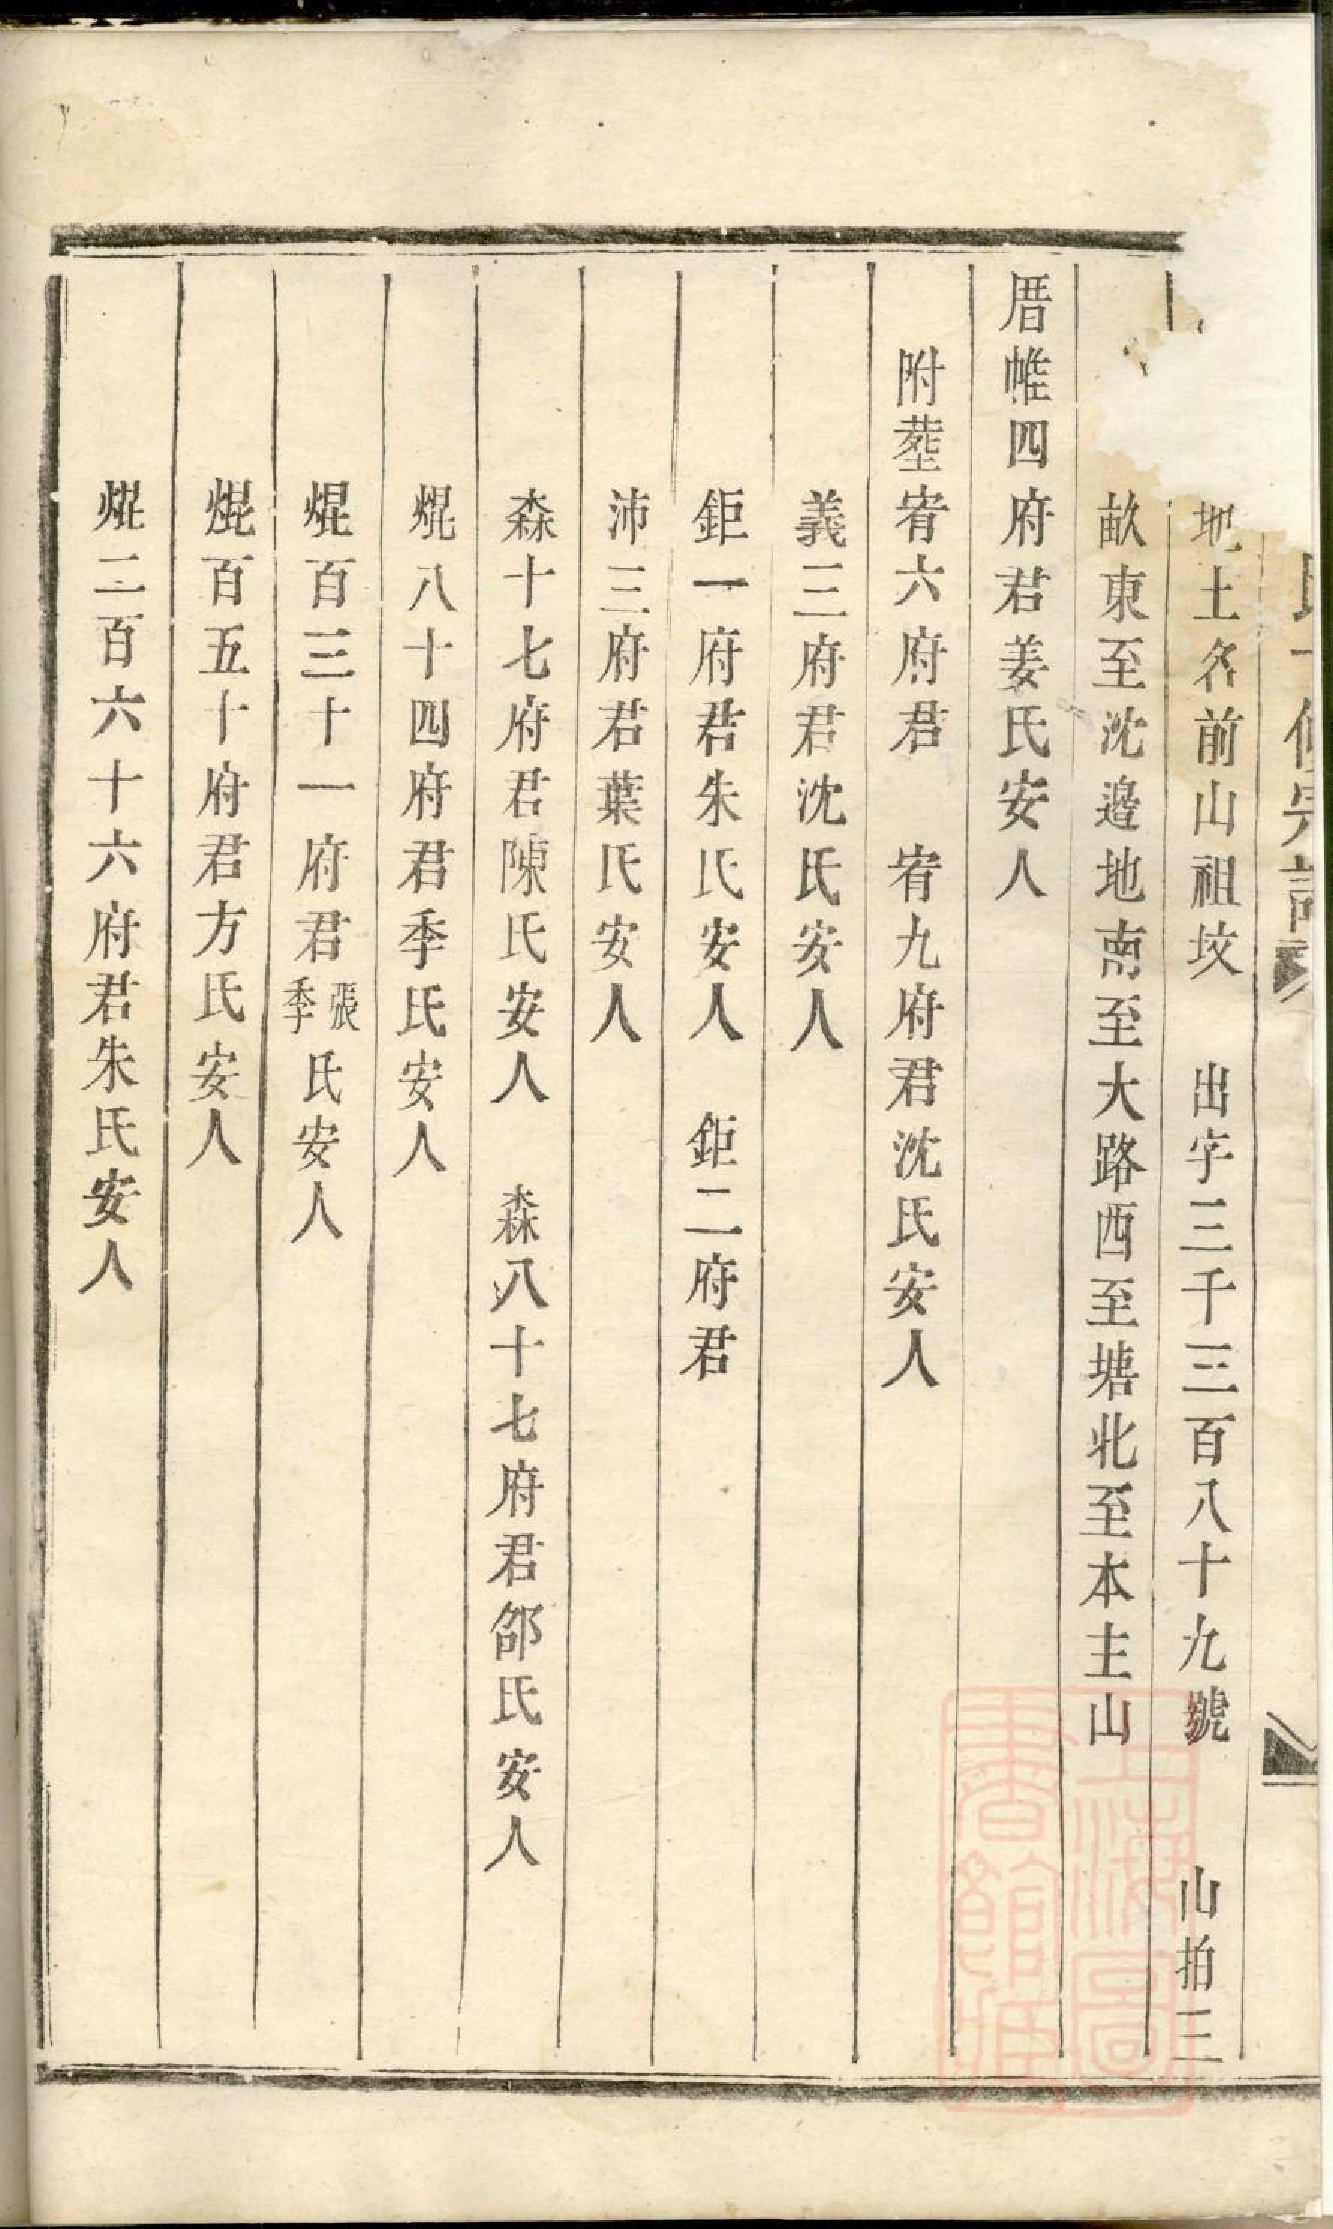 地土名前山祖坟　出字三千三百八十九號　山拍三
畝東至沈邉地南至大路西至塘北至本主山
厝帷四府君姜氏安人
附塟宥六府君　宥九府君沈氏安人
義三府君沈氏安人
鉅一府君朱氏安人　鉅二府君
沛三府君葉氏安人
森十七府君陳氏安人　森八十七府君邰氏安人
焜八十四府君季氏安人
焜百三十一府君張季氏安人
焜百五十府君方氏安人
焜二百六十六府君朱氏安人
上海圖
書館藏